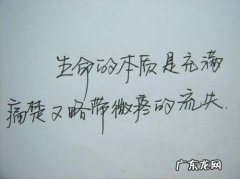 生命的本质是充满
痛楚又略带微疼的流失.
广东龙网